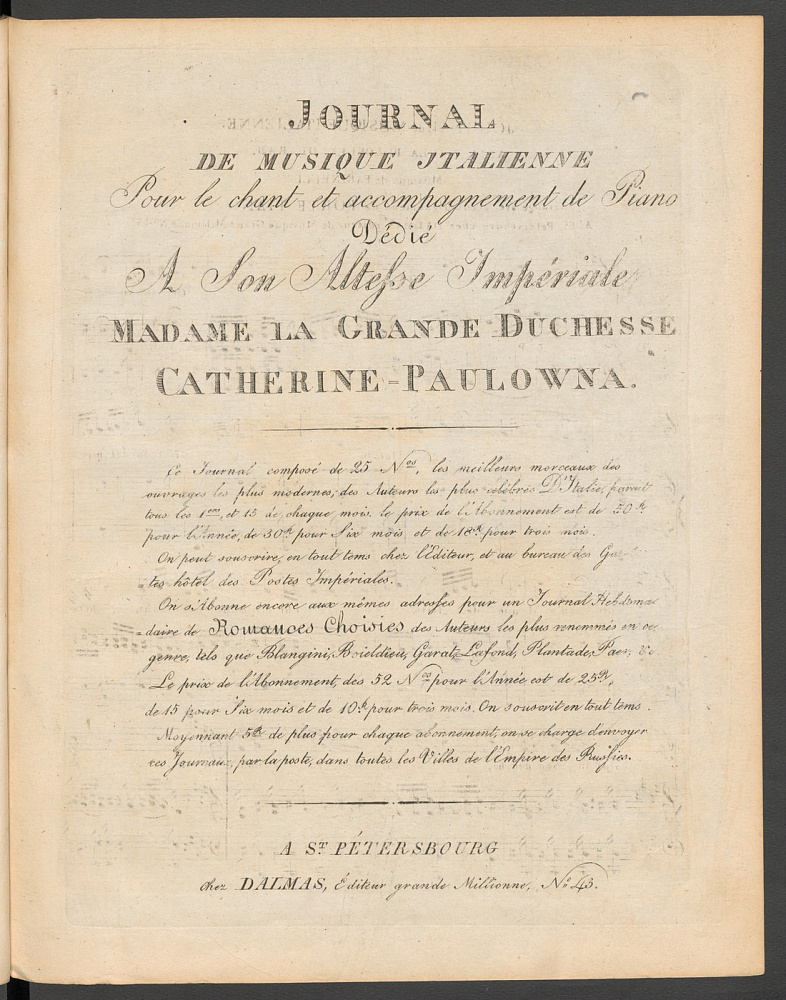 JOURNAL
DE MUSIQUE ITALIENNE
Pour le chant et accompagnement de Piano
Dédié
A Son Altesse Impériale
MADAME LA GRANDE DUCHESSE
CATHERINE-PAULOWNA.
Ce Journal composé de 25 Nos, les meilleurs morceaux des
ouvrages les plus modernes, des Auteurs les plus célébres D'Italie, parait
tous les 1ers, et 15 de, chaque mois. le prix de l'Abonnement est de 50 R.
pour l'Année, de 30 R pour Six mois et de 18 R pour trois mois.
On peut souscrire, en tout tems chez l'Editeur, et au bureau des
tes hôtel des Postes Impériales.
On s'Abonne encore aux mêmes adresses pour un Journal Hebdoma
=daire de Romances Choisies des Auteurs les plus renommés en ce
genre, tels que Blangini, Boieldieu, Garat, Lafond, Plantade, Paer, &c
Le prix de l'Abonnement, des 52 Nos pour l'Année est de 25 R,
de 15 pour Six mois et de 10 R pour trois mois. On souscrit en tout tems.
Moyennant 5 R de plus pour chaque abonnement, on se charge d'envoyer
ces Journaux, par la poste, dans toutes les Villes de l'Empire des Russies.
A ST. PÉTERSBOURG
chez DALMAS, Éditeur grande Millionne, No 43.